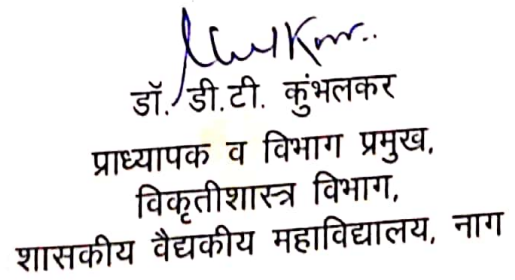 डॉ. डी.टी. कुंभलकर
प्राध्यापक व विभाग प्रमुख,
विकृतीशास्त्र विभाग,
शासकीय वैद्यकीय महाविद्यालय, नाग